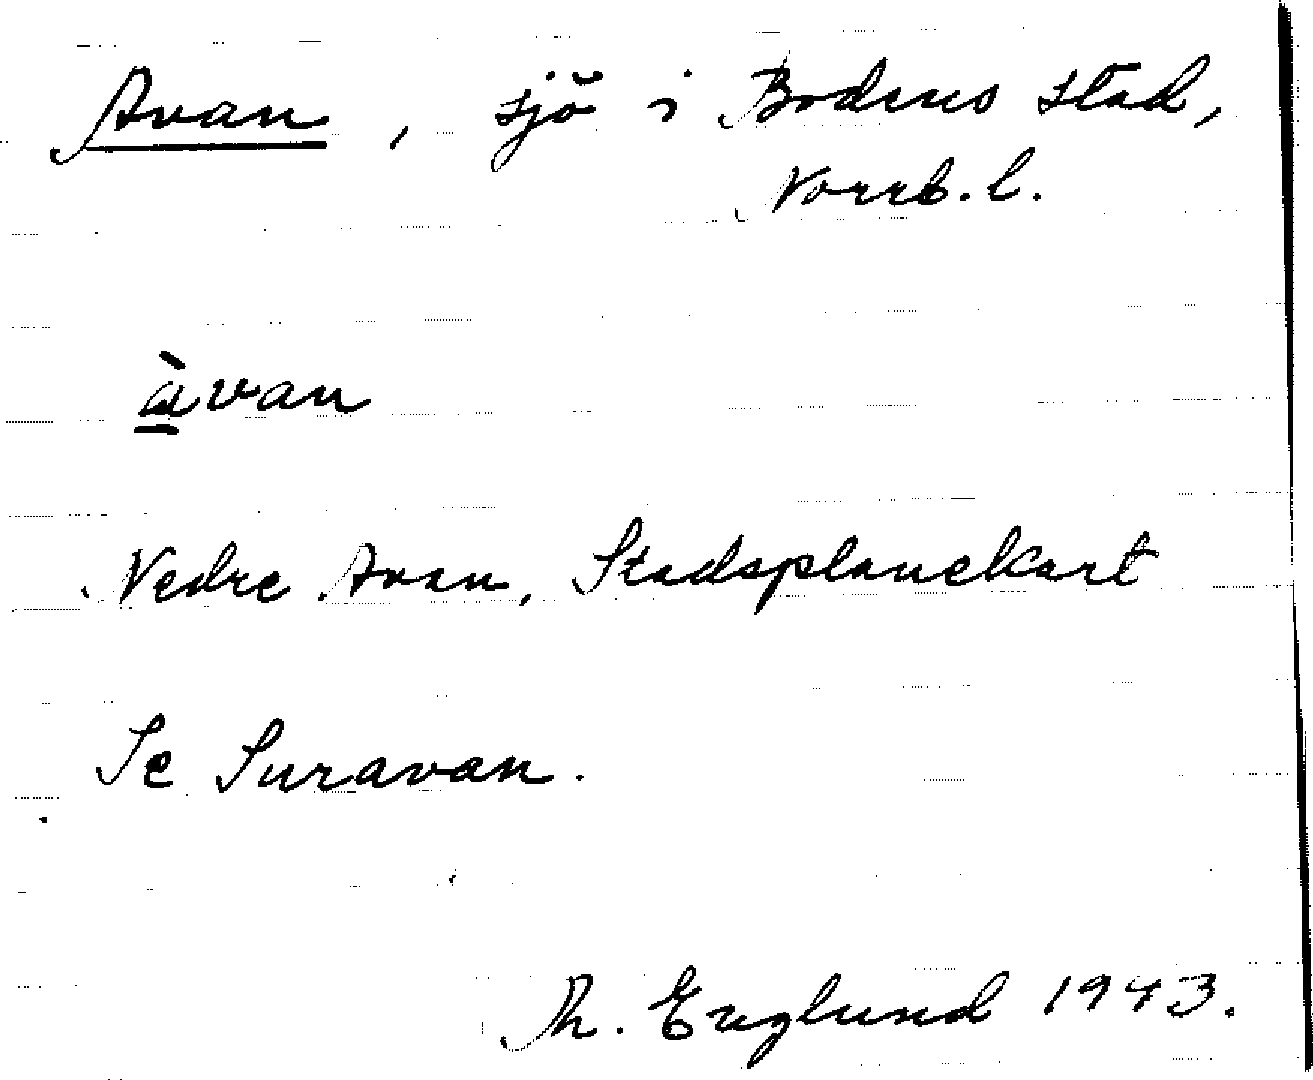 Avan, sjö i Bodens stad,
Norrb. l.
àvan
Nedre Avan, Stadsplanekart
Se Suravan.
Th. Englund 1943.